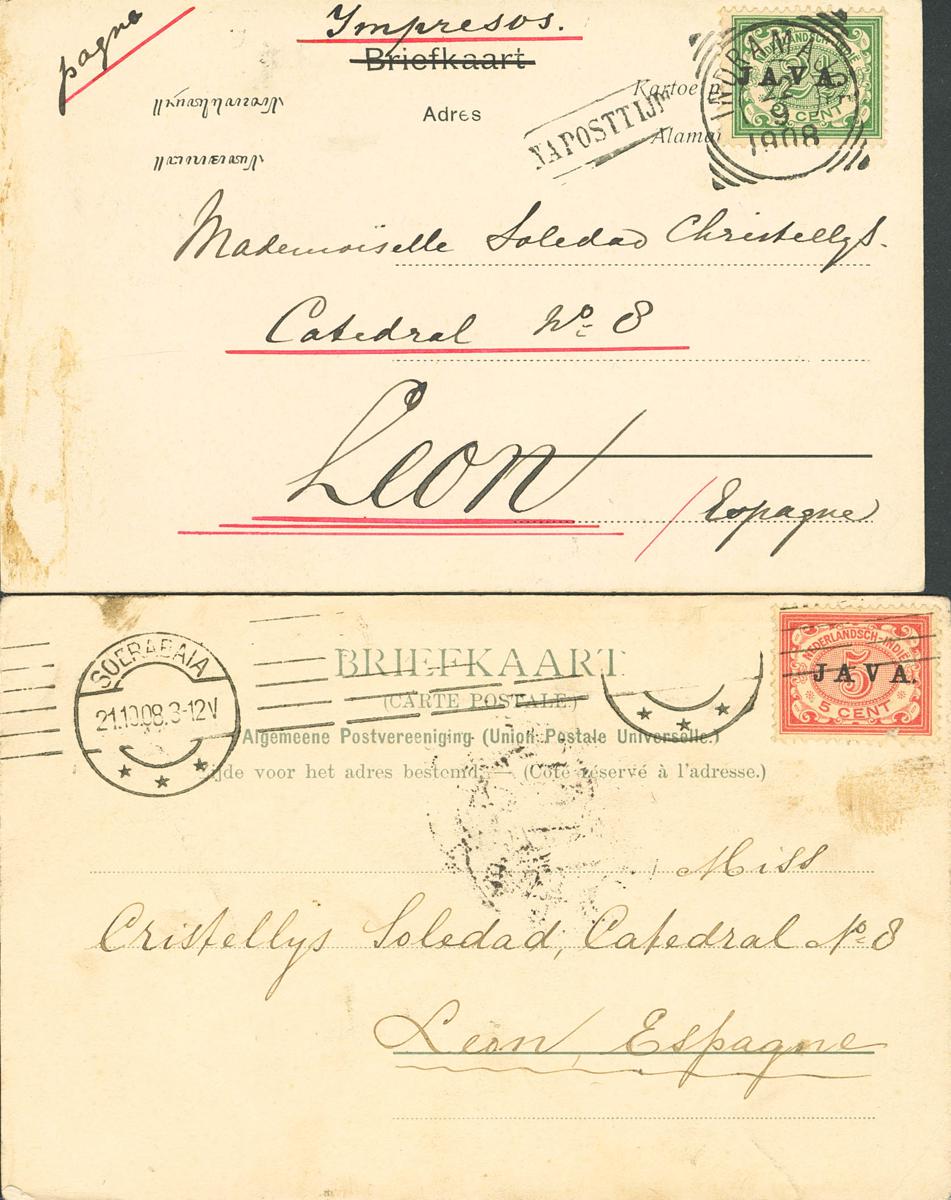 pagne
Impresos.
Briefkaart
Adres
NAPOSTTIJD
INDRAMAJOE
22
9
1908
JAVA.
CENT
Mademoiselle Soledad Christellys.
Catedral Nº 8
Leon
Espagne
SOERABAIA
21.10.08.3-12V
BRIEFKAART
(CARTE POSTALE.)
Algemeene Postvereeniging (Union Postale Universelle.)
Zijde voor het adres bestemd. — (Côté réservé à l'adresse.)
NEDERLANDSCH-INDIË
JAVA.
5
5 CENT
Miss
Cristellys Soledad, Catedral Nº 8
Leon, Espagne